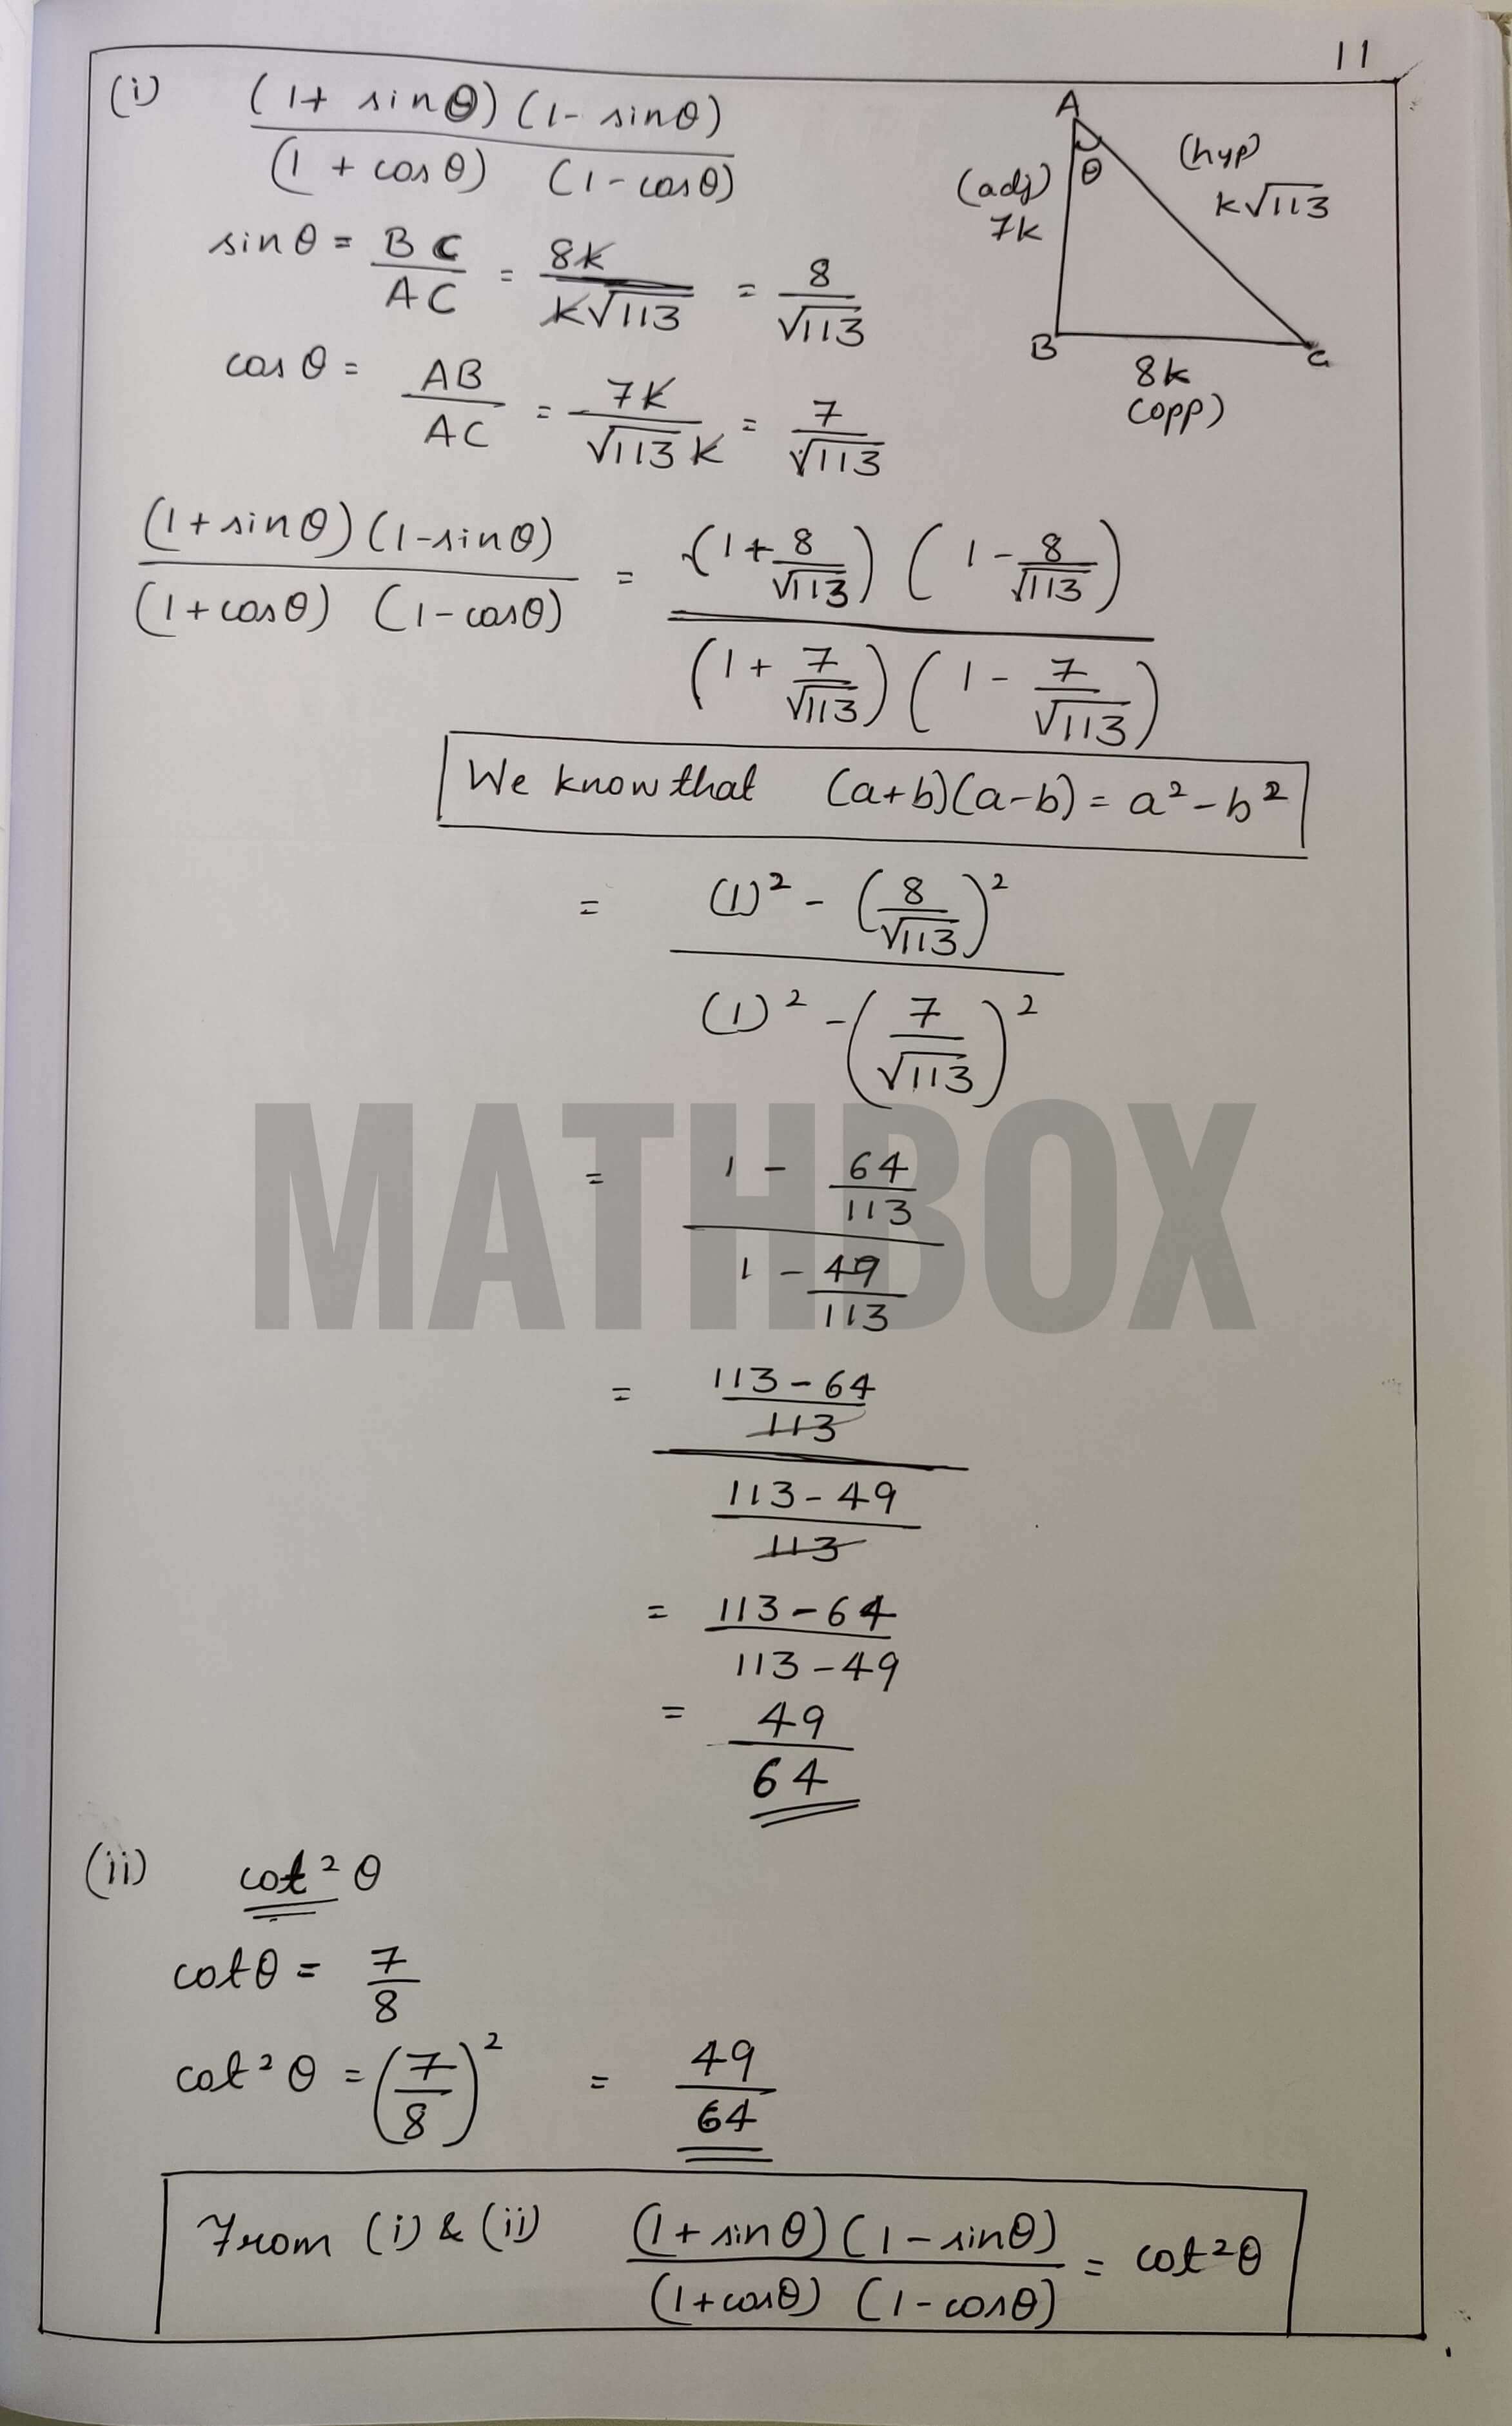 11
(i) (1+ sinθ) (1- sinθ)
(1 + cosθ) (1-cosθ)
A
(adj)
7k
θ
(hyp)
k√113
B
C
8k
(opp)
sinθ = BC/AC = 8k/k√113 = 8/√113
cosθ = AB/AC = 7k/√113 k = 7/√113
(1+sinθ)(1-sinθ) / (1+cosθ) (1-cosθ) = (1+8/√113) (1-8/√113) / (1+7/√113) (1-7/√113)
We know that (a+b)(a-b) = a²-b²
= (1)² - (8/√113)² / (1)² - (7/√113)²
MATHBOX
= 1 - 64/113 / 1 - 49/113
= 113-64/113 / 113-49/113
= 113-64 / 113-49
= 49/64
(ii) cot²θ
cotθ = 7/8
cot²θ = (7/8)² = 49/64
From (i) & (ii) (1+sinθ)(1-sinθ) / (1+cosθ) (1-cosθ) = cot²θ